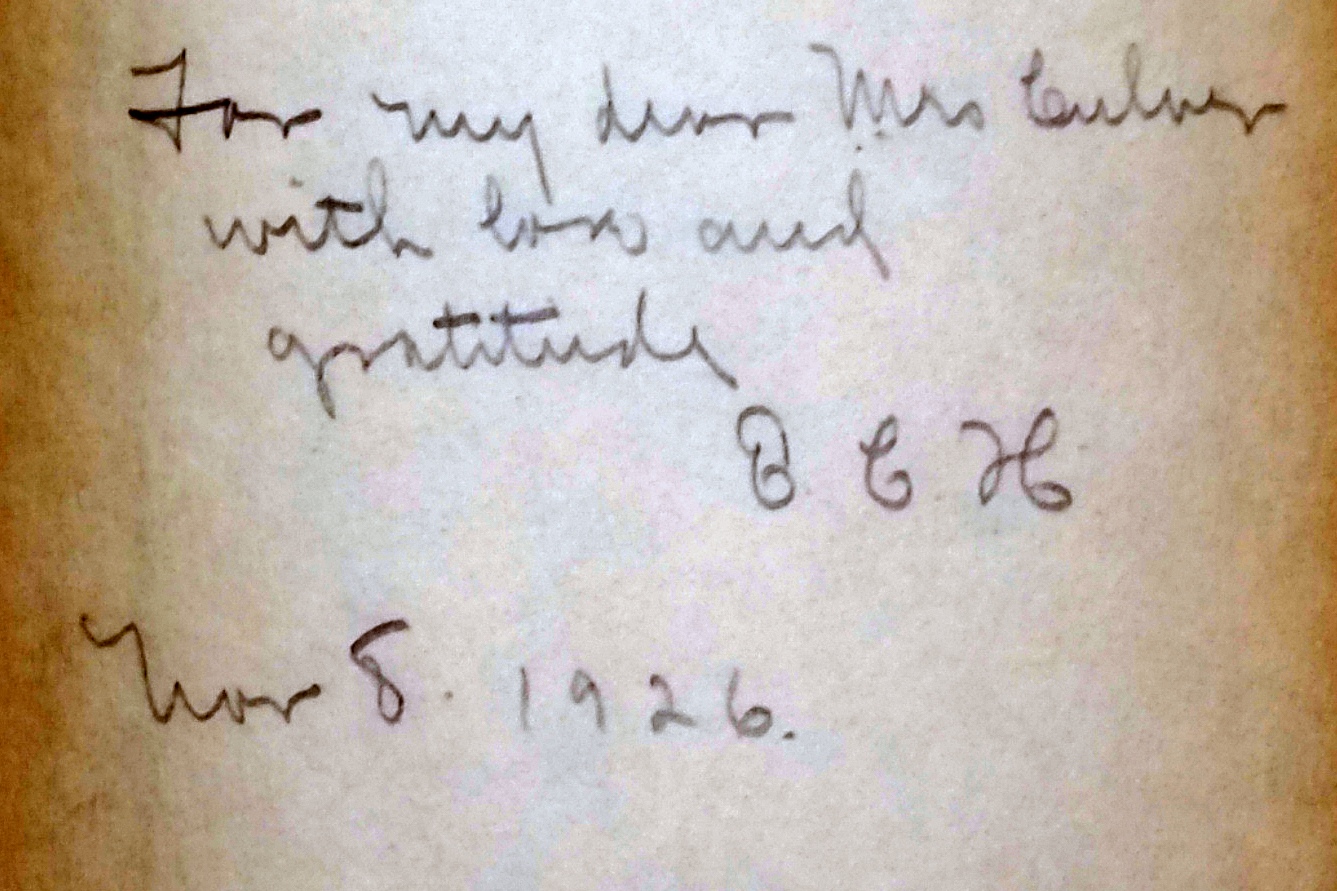 For my dear Mrs Culver
with love and
gratitude
B C H
Nov 8. 1926.